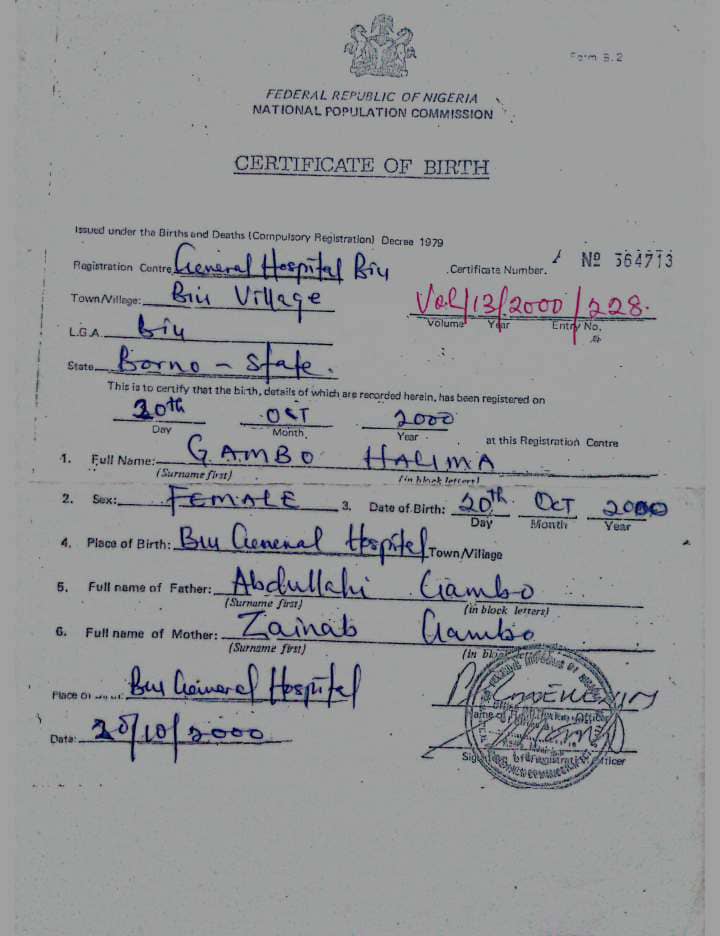 Form B.2
FEDERAL REPUBLIC OF NIGERIA
NATIONAL POPULATION COMMISSION
CERTIFICATE OF BIRTH
Issued under the Births and Deaths (Compulsory Registration) Decree 1979
Registration Centre General Hospital Biu Certificate Number. A № 364713
Town/Village: Biu Village Vol/13/2000/228.
Volume Year Entry No.
L.G.A. Biu
State Borno - State.
This is to certify that the birth, details of which are recorded herein, has been registered on
20th OCT 2000
Day Month Year at this Registration Centre
1. Full Name: GAMBO HALIMA
(Surname first) (in block letters)
2. Sex: FEMALE 3. Date of Birth: 20th OCT 2000
Day Month Year
4. Place of Birth: Biu General Hospital Town/Village
5. Full name of Father: Abdullahi Gambo
(Surname first) (in block letters)
6. Full name of Mother: Zainab Gambo
(Surname first) (in block letters)
Place of Biu General Hospital
Name of Officer
Date: 20/10/2000
Officer